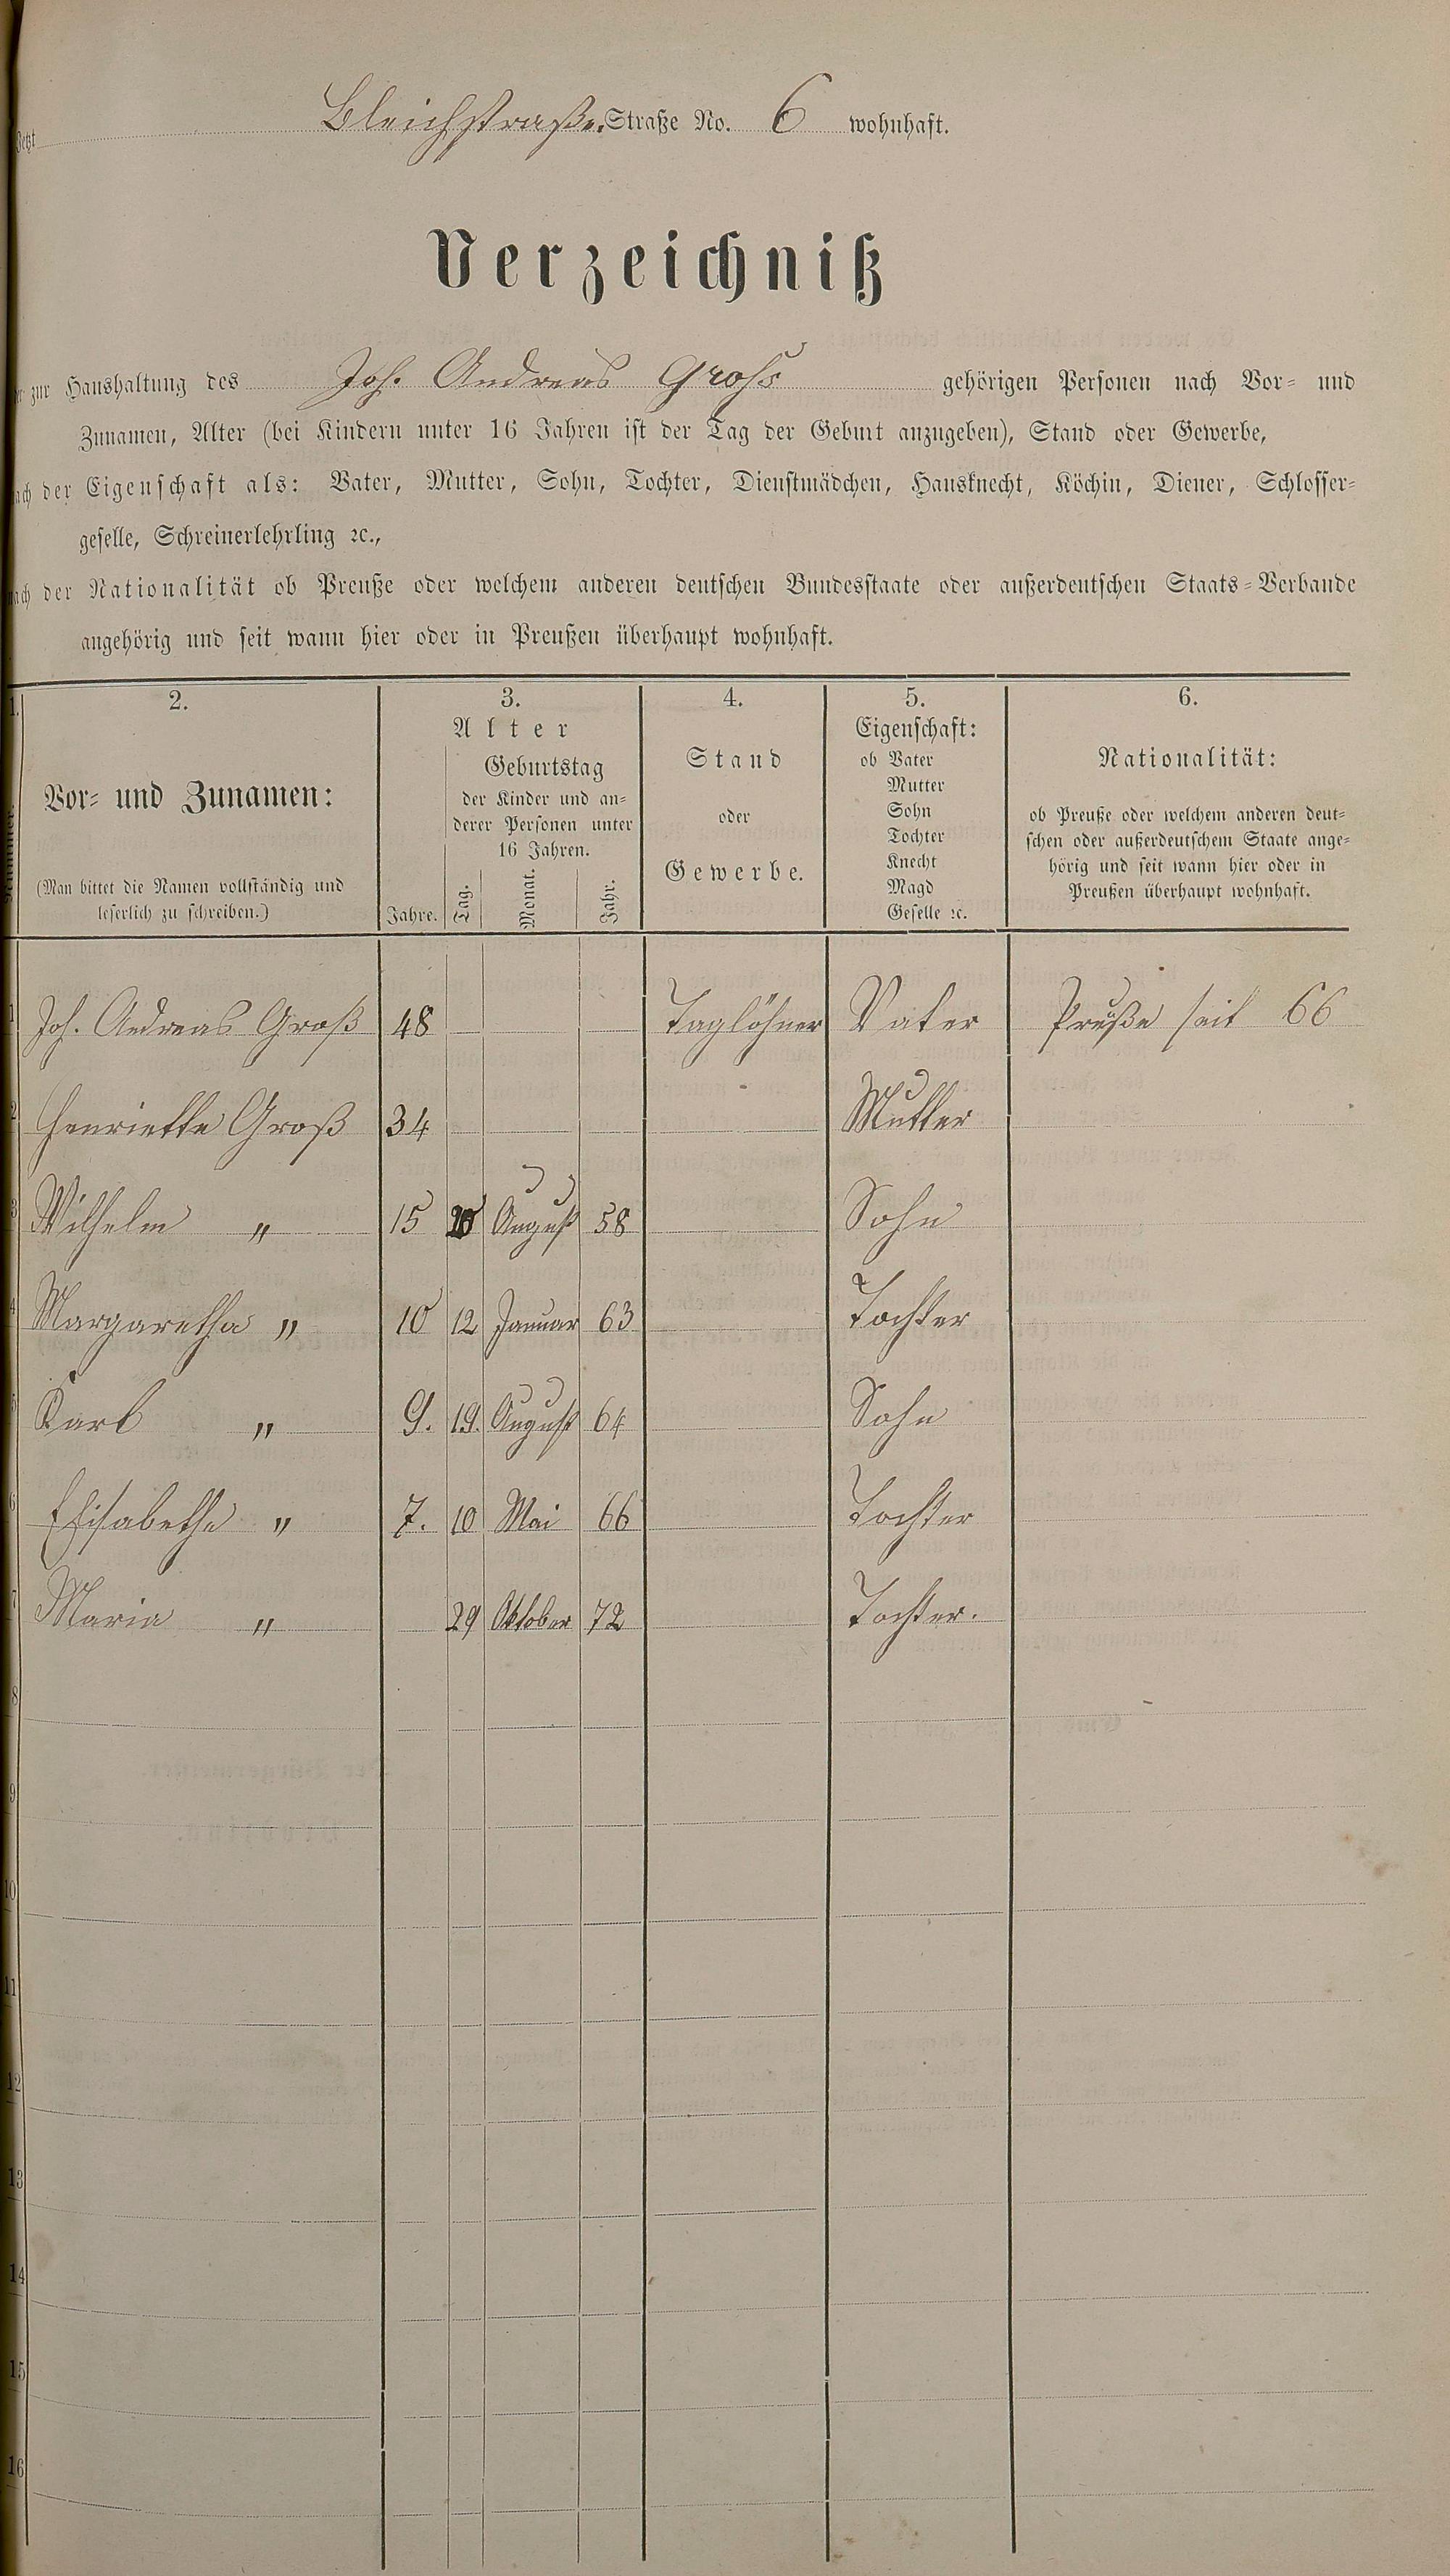 Jetzt Bleichstraße. Straße No. 6 wohnhaft.
Verzeichniß
der zur Haushaltung des Joh. Andreas Groß gehörigen Personen nach Vor- und
Zunamen, Alter (bei Kindern unter 16 Jahren ist der Tag der Geburt anzugeben), Stand oder Gewerbe,
nach der Eigenschaft als: Vater, Mutter, Sohn, Tochter, Dienstmädchen, Hausknecht, Köchin, Diener, Schlosser-
geselle, Schreinerlehrling ꝛc.,
nach der Nationalität ob Preuße oder welchem anderen deutschen Bundesstaate oder außerdeutschen Staats-Verbande
angehörig und seit wann hier oder in Preußen überhaupt wohnhaft.
1. 2. 3. 4. 5. 6.
Nummer.
Vor- und Zunamen:
(Man bittet die Namen vollständig und
leserlich zu schreiben.)
Alter
Jahre.
Geburtstag
der Kinder und an-
derer Personen unter
16 Jahren.
Tag. Monat. Jahr.
Stand
oder
Gewerbe.
Eigenschaft:
ob Vater
Mutter
Sohn
Tochter
Knecht
Magd
Geselle ꝛc.
Nationalität:
ob Preuße oder welchem anderen deut-
schen oder außerdeutschem Staate ange-
hörig und seit wann hier oder in
Preußen überhaupt wohnhaft.
1 Joh. Andreas Groß 48 Taglöhner Vater Preuße seit 66
2 Henriette Groß 34 Mutter
3 Wilhelm " 15 August 58 Sohn
4 Margaretha " 10 12 Januar 63 Tochter
5 Karl " 9. 19. August 64 Sohn
6 Elisabetha " 7. 10 Mai 66 Tochter
7 Maria " 29 Oktober 72 Tochter.
8
9
10
11
12
13
14
15
16